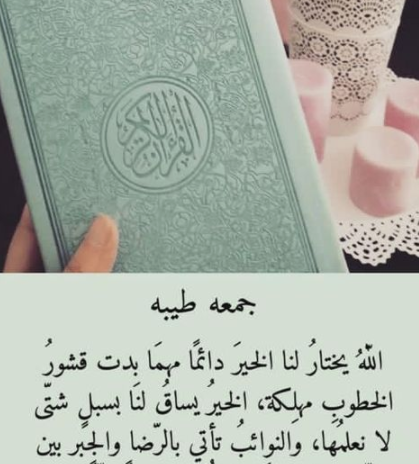 القرآن الكريم
جمعه طيبه
اللهُ يختارُ لنا الخيرَ دائمًا مهمَا بدت قشورُ
الخطوبِ مهلِكة، الخيرُ يساقُ لنَا بسبلٍ شتّى
لا نعلمُها، وَالنوائبُ تأتي بالرّضا والجبر بين